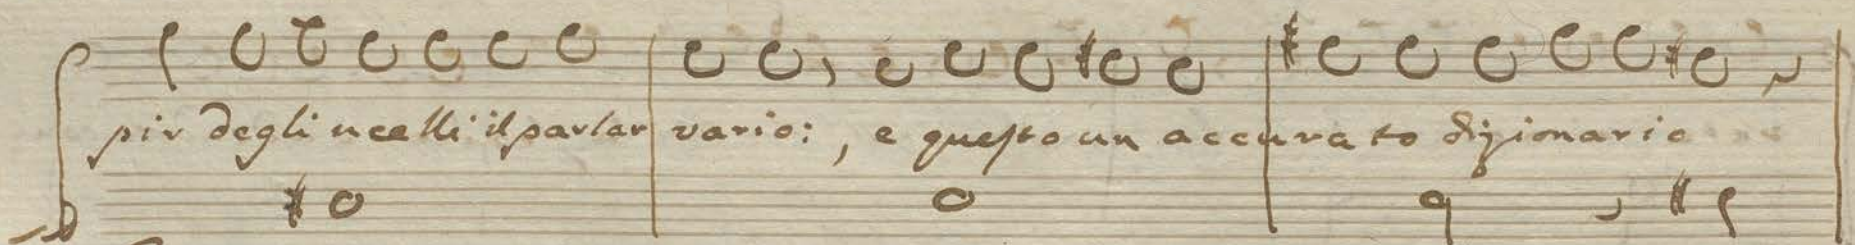 pir degli ucelli il parlar vario:, e questo un accurato dizionario